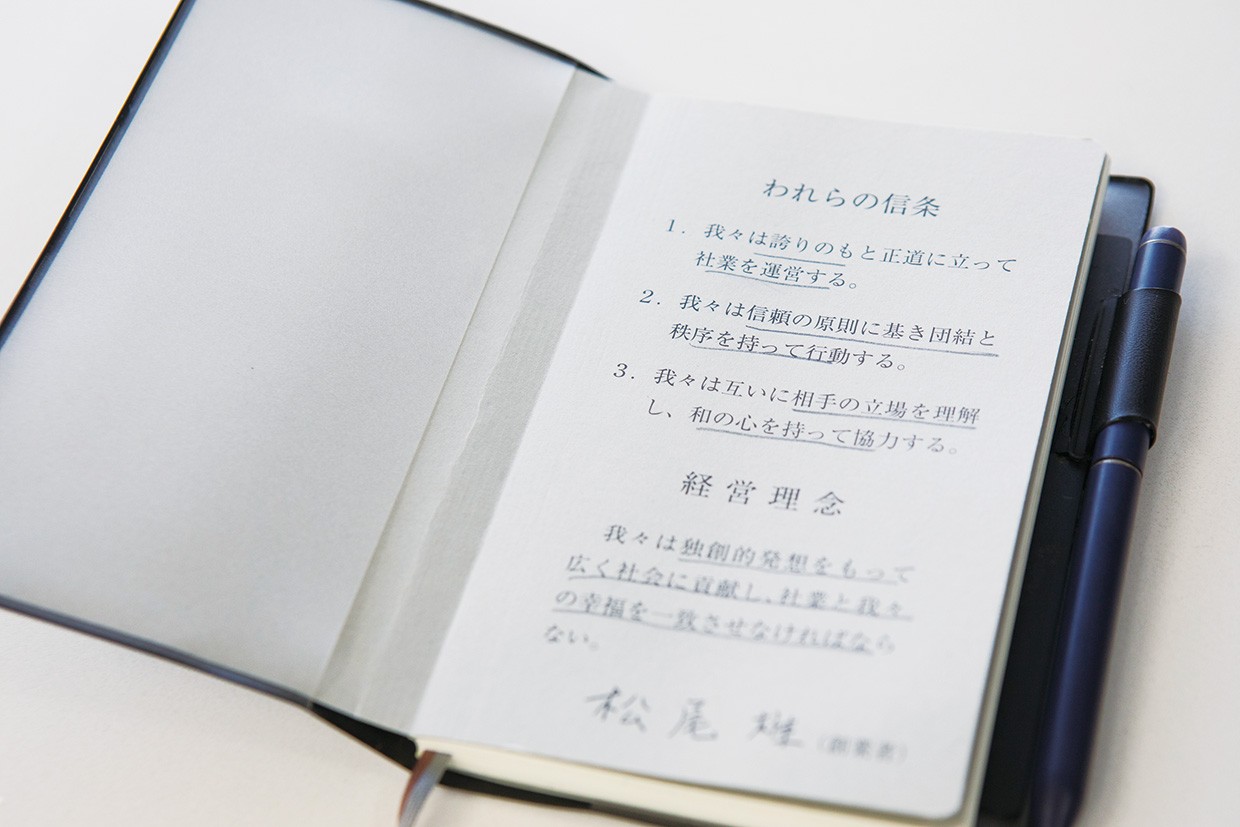 われらの信条
1. 我々は誇りのもと正道に立って
社業を運営する。
2. 我々は信頼の原則に基き団結と
秩序を持って行動する。
3. 我々は互いに相手の立場を理解
し、和の心を持って協力する。
経営理念
我々は独創的発想をもって
広く社会に貢献し、社業と我々
の幸福を一致させなければなら
ない。
松尾 雄 (創業者)